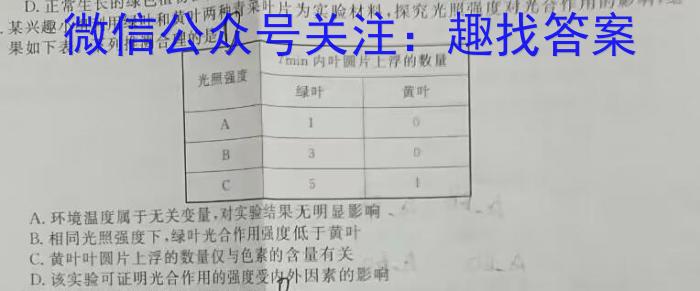 D. 正常生长的绿色植
某兴趣小 绿叶和黄叶两种青菜叶片为实验材料,探究光照强度对光合作用的影响,结
果如下表 列推测合理的是
微信公众号关注：趣找答案
光照强度 7min内叶圆片上浮的数量
绿叶 黄叶
A 1 0
B 3 0
C 5 1
A. 环境温度属于无关变量,对实验结果无明显影响
B. 相同光照强度下,绿叶光合作用强度低于黄叶
C. 黄叶叶圆片上浮的数量仅与色素的含量有关
D. 该实验可证明光合作用的强度受内外因素的影响